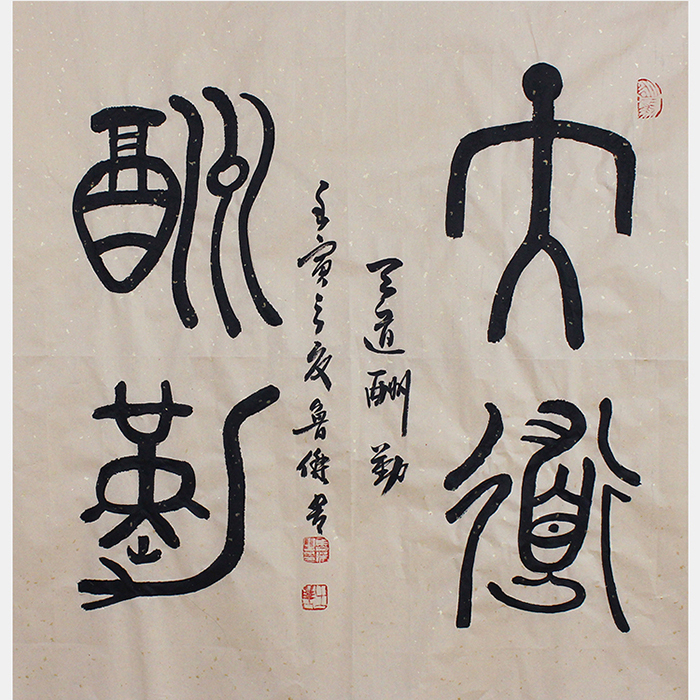 天道
天道酬勤
壬寅之夏魯書
酬勤